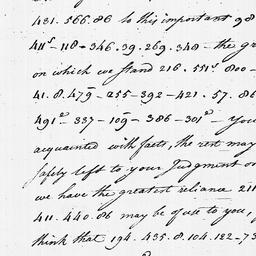 431. 566. 86 to this important 98
411s - 118 - 346. 39. 269. 340 - the gr
on which we stand 216. 551s 800 -
41. 8. 479 - 255 - 392 - 421. 57. 86
491d - 337 - 109 - 386 - 301d - You
acquainted with facts, the rest may
safely left to your Judgment on
we have the greatest reliance 211
411. 440. 86 may be of use to you,
think that 194. 435. 8. 104. 182 - 73